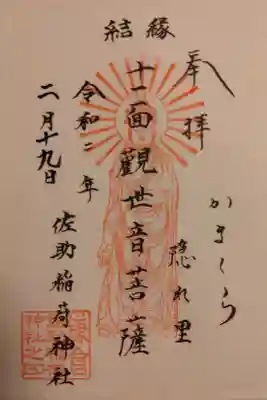 結縁
奉拝
かまくら
隠れ里
十一面觀世音菩薩
令和二年
二月十九日
佐助稲荷神社